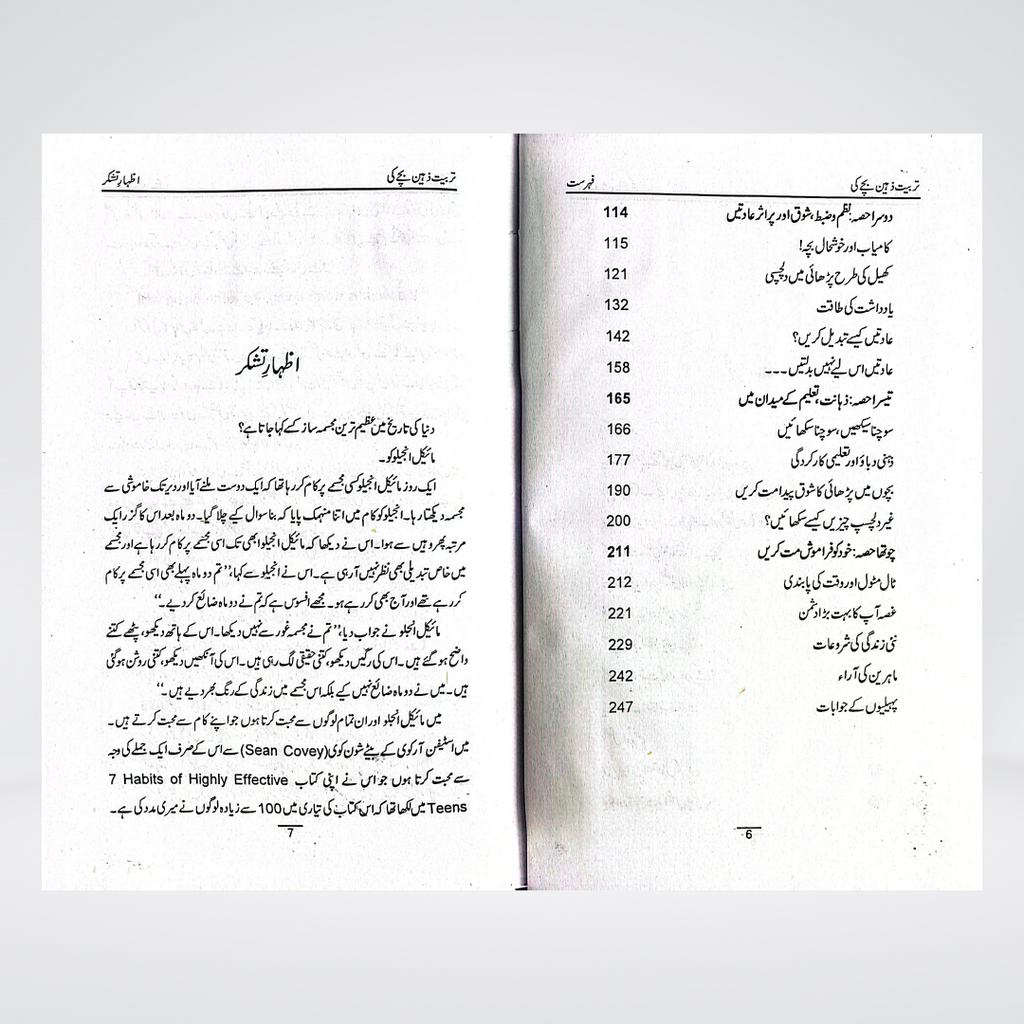 تربیت ذہین بچے کی فہرست
دوسرا حصہ: نظم وضبط، شوق اور پراثر عادتیں 114
کامیاب اور خوشحال بچہ! 115
کھیل کی طرح پڑھائی میں دلچسپی 121
یادداشت کی طاقت 132
عادتیں کیسے تبدیل کریں؟ 142
عادتیں اس لیے نہیں بدلتیں ۔۔۔ 158
تیسرا حصہ: ذہانت، تعلیم کے میدان میں 165
سوچنا سیکھیں، سوچنا سکھائیں 166
ذہنی دباؤ اور تعلیمی کارکردگی 177
بچوں میں پڑھائی کا شوق پیدا مت کریں 190
غیر دلچسپ چیزیں کیسے سکھائیں؟ 200
چوتھا حصہ: خود کو فراموش مت کریں 211
ٹال مٹول اور وقت کی پابندی 212
غصہ آپ کا بہت بڑا دشمن 221
نئی زندگی کی شروعات 229
ماہرین کی آراء 242
پہیلیوں کے جوابات 247
6
تربیت ذہین بچے کی اظہارِ تشکر
اظہارِ تشکر
دنیا کی تاریخ میں عظیم ترین مجسمہ ساز کسے کہا جاتا ہے؟
مائیکل انجیلو کو۔
ایک روز مائیکل انجیلو کسی مجسمے پر کام کر رہا تھا کہ ایک دوست ملنے آیا اور دیر تک خاموشی سے
مجسمہ دیکھتا رہا۔ انجیلو کو کام میں اتنا منہمک پایا کہ بنا سوال کیے چلا گیا۔ دو ماہ بعد اس کا گزر ایک
مرتبہ پھر وہیں سے ہوا۔ اس نے دیکھا کہ مائیکل انجیلو ابھی تک اسی مجسمے پر کام کر رہا ہے اور مجسمے
میں خاص تبدیلی بھی نظر نہیں آ رہی ہے۔ اس نے انجیلو سے کہا، ’’تم دو ماہ پہلے بھی اسی مجسمے پر کام
کر رہے تھے اور آج بھی کر رہے ہو۔ مجھے افسوس ہے کہ تم نے دو ماہ ضائع کر دیے۔‘‘
مائیکل انجلو نے جواب دیا، ’’تم نے مجسمہ غور سے نہیں دیکھا۔ اس کے ہاتھ دیکھو، پٹھے کتنے
واضح ہو گئے ہیں۔ اس کی رگیں دیکھو، کتنی حقیقی لگ رہی ہیں۔ اس کی آنکھیں دیکھو، کتنی روشن ہو گئی
ہیں۔ میں نے دو ماہ ضائع نہیں کیے بلکہ اس مجسمے میں زندگی کے رنگ بھر دیے ہیں۔‘‘
میں مائیکل انجلو اور ان تمام لوگوں سے محبت کرتا ہوں جو اپنے کام سے محبت کرتے ہیں۔
میں اسٹیفن آر کوی کے بیٹے شون کوی (Sean Covey) سے اس کے صرف ایک جملے کی وجہ
سے محبت کرتا ہوں جو اس نے اپنی کتاب 7 Habits of Highly Effective
Teens میں لکھا تھا کہ اس کتاب کی تیاری میں 100 سے زیادہ لوگوں نے میری مدد کی ہے۔
7